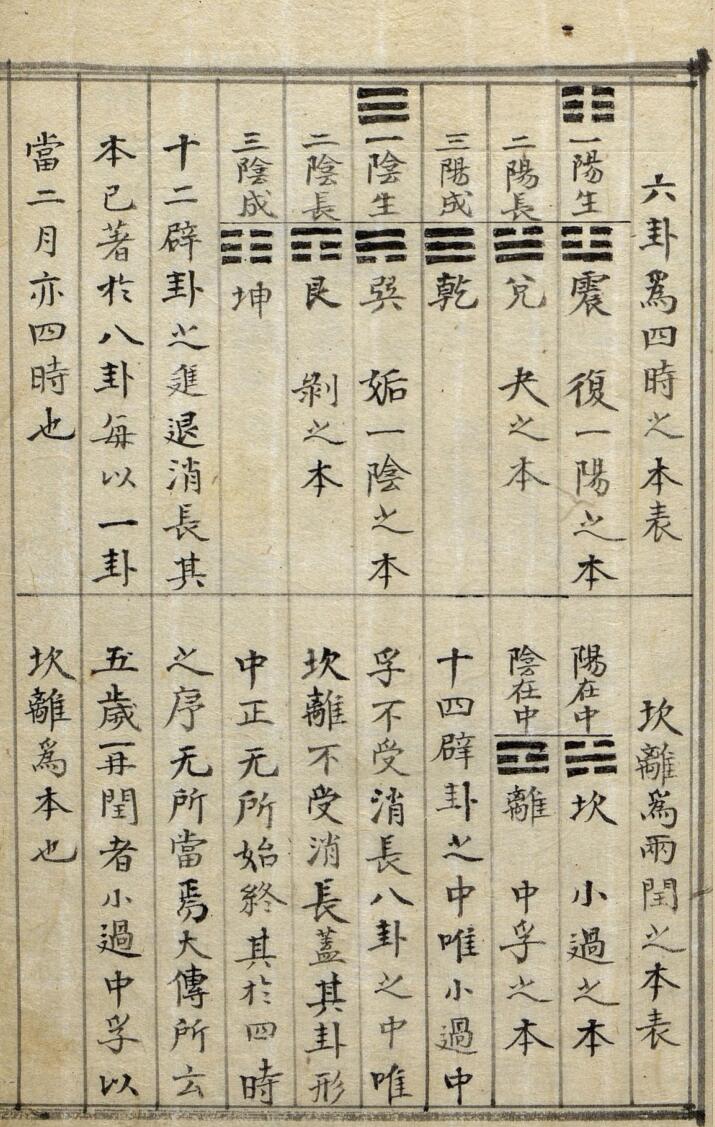 六卦爲四時之本表
☷一陽生☳震 復一陽之本
二陽長☱兌 夬之本
三陽成☰乾
☰一陰生☴巽 姤一陰之本
二陰長☶艮 剝之本
三陰成☷坤
十二辟卦之進退消長其
本已著於八卦每以一卦
當二月亦四時也
坎離爲兩閏之本表
陽在中☵坎 小過之本
陰在中☲離 中孚之本
十四辟卦之中唯小過中
孚不受消長八卦之中唯
坎離不受消長蓋其卦形
中正无所始終其於四時
之序无所當焉大傳所云
五歲再閏者小過中孚以
坎離爲本也